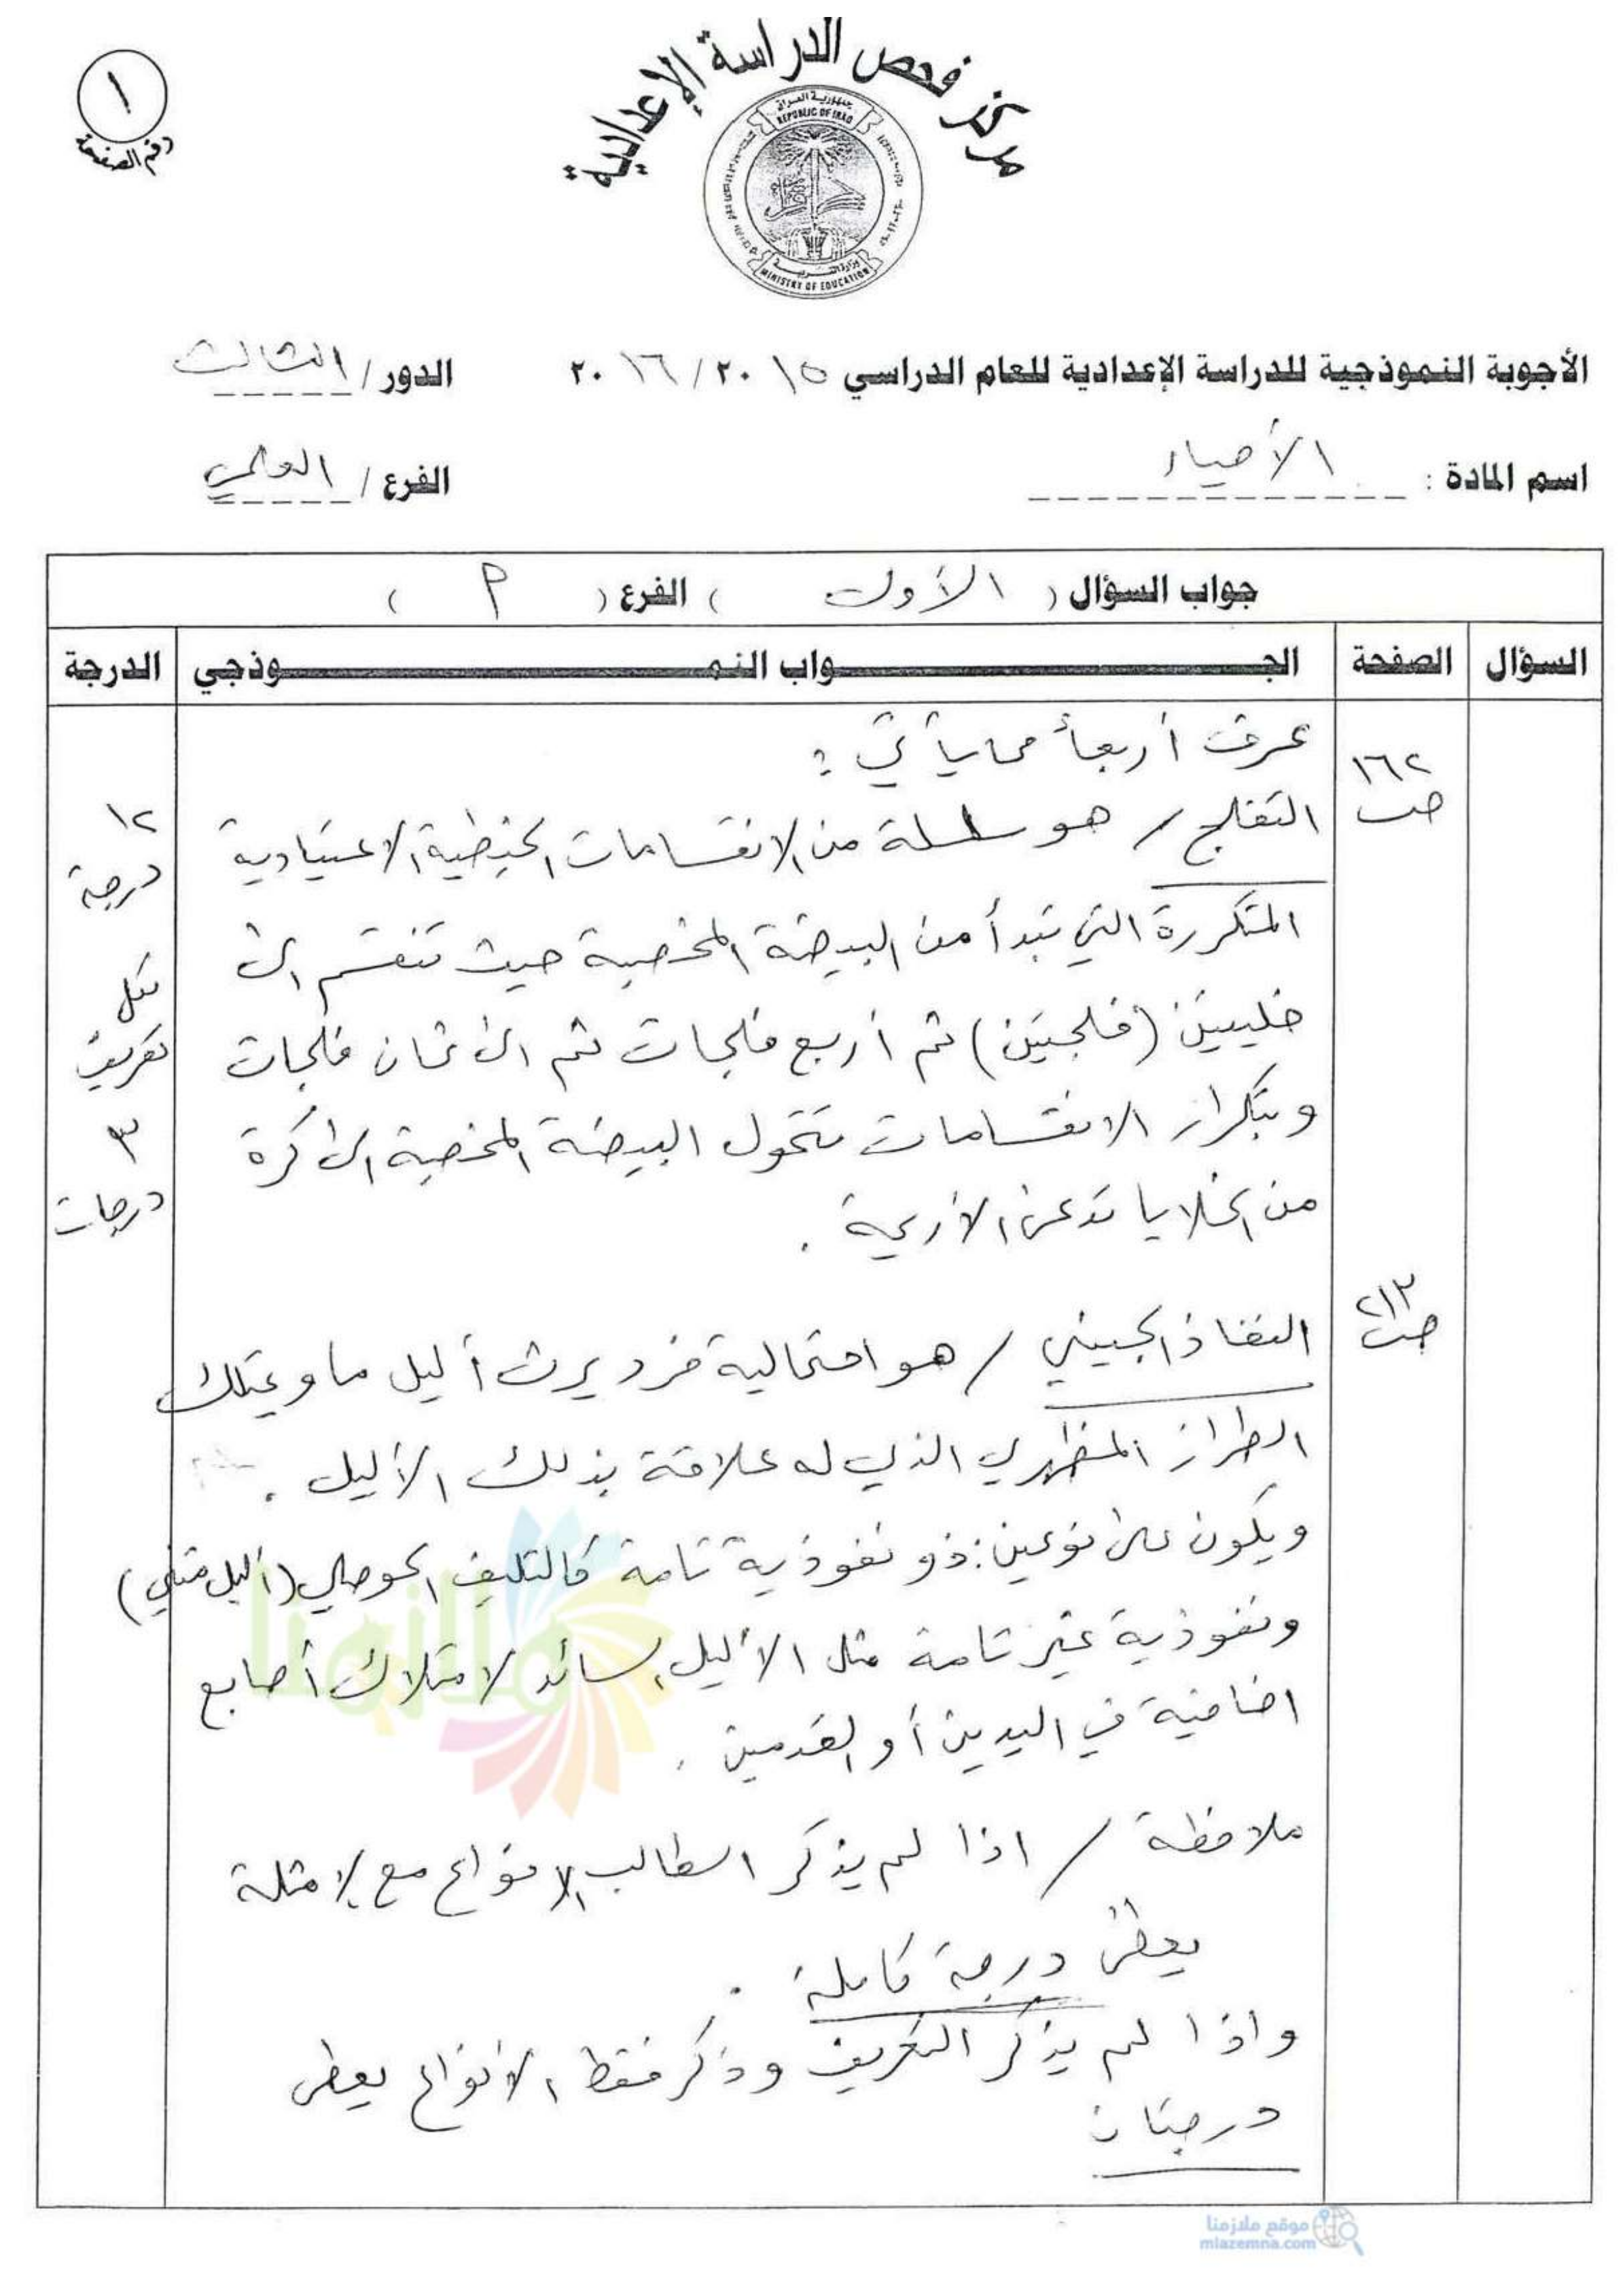 ١
رقم الصفحة
مركز فحص الدراسة الإعدادية
جمهورية العراق
REPUBLIC OF IRAQ
وزارة التربية
MINISTRY OF EDUCATION
الأجوبة النموذجية للدراسة الإعدادية للعام الدراسي ٢٠١٥ / ٢٠١٦ الدور / الثالث
اسم المادة : الأحياء الفرع / العلمي
جواب السؤال ( الأول ) الفرع ( م )
السؤال الصفحة الجـــواب النمـــوذجي الدرجة
عرف أربعاً مما يأتي :
١٦٢ ص
التفلج / هو سلسلة من الانقسامات الخيطية الاعتيادية
١٢ درجة
المتكررة التي تبدأ من البيضة المخصبة حيث تنقسم الى
خليتين (فلجتين) ثم أربع فلجات ثم الى ثمان فلجات
لكل تعريف
وبتكرار الانقسامات تتحول البيضة المخصبة الى كرة
٣ درجات
من الخلايا تدعى الأريمة .
٢١٣ ص
النفاذ الجيني / هو احتمالية فرد يرث أليل ما ويمتلك
الطراز المظهري الذي له علاقة بذلك الأليل .
ويكون على نوعين : ذو نفوذية تامة كالتليف الحوصلي (أليل متنحي)
ونفوذية غير تامة مثل الأليل السائد لامتلاك أصابع
اضافية في اليدين أو القدمين .
ملاحظة / اذا لم يذكر الطالب الانواع مع الامثلة
يعطى درجة كاملة .
واذا لم يذكر التعريف وذكر فقط الأنواع يعطى
درجتان
ملازمنا
موقع ملازمنا
mlazemna.com